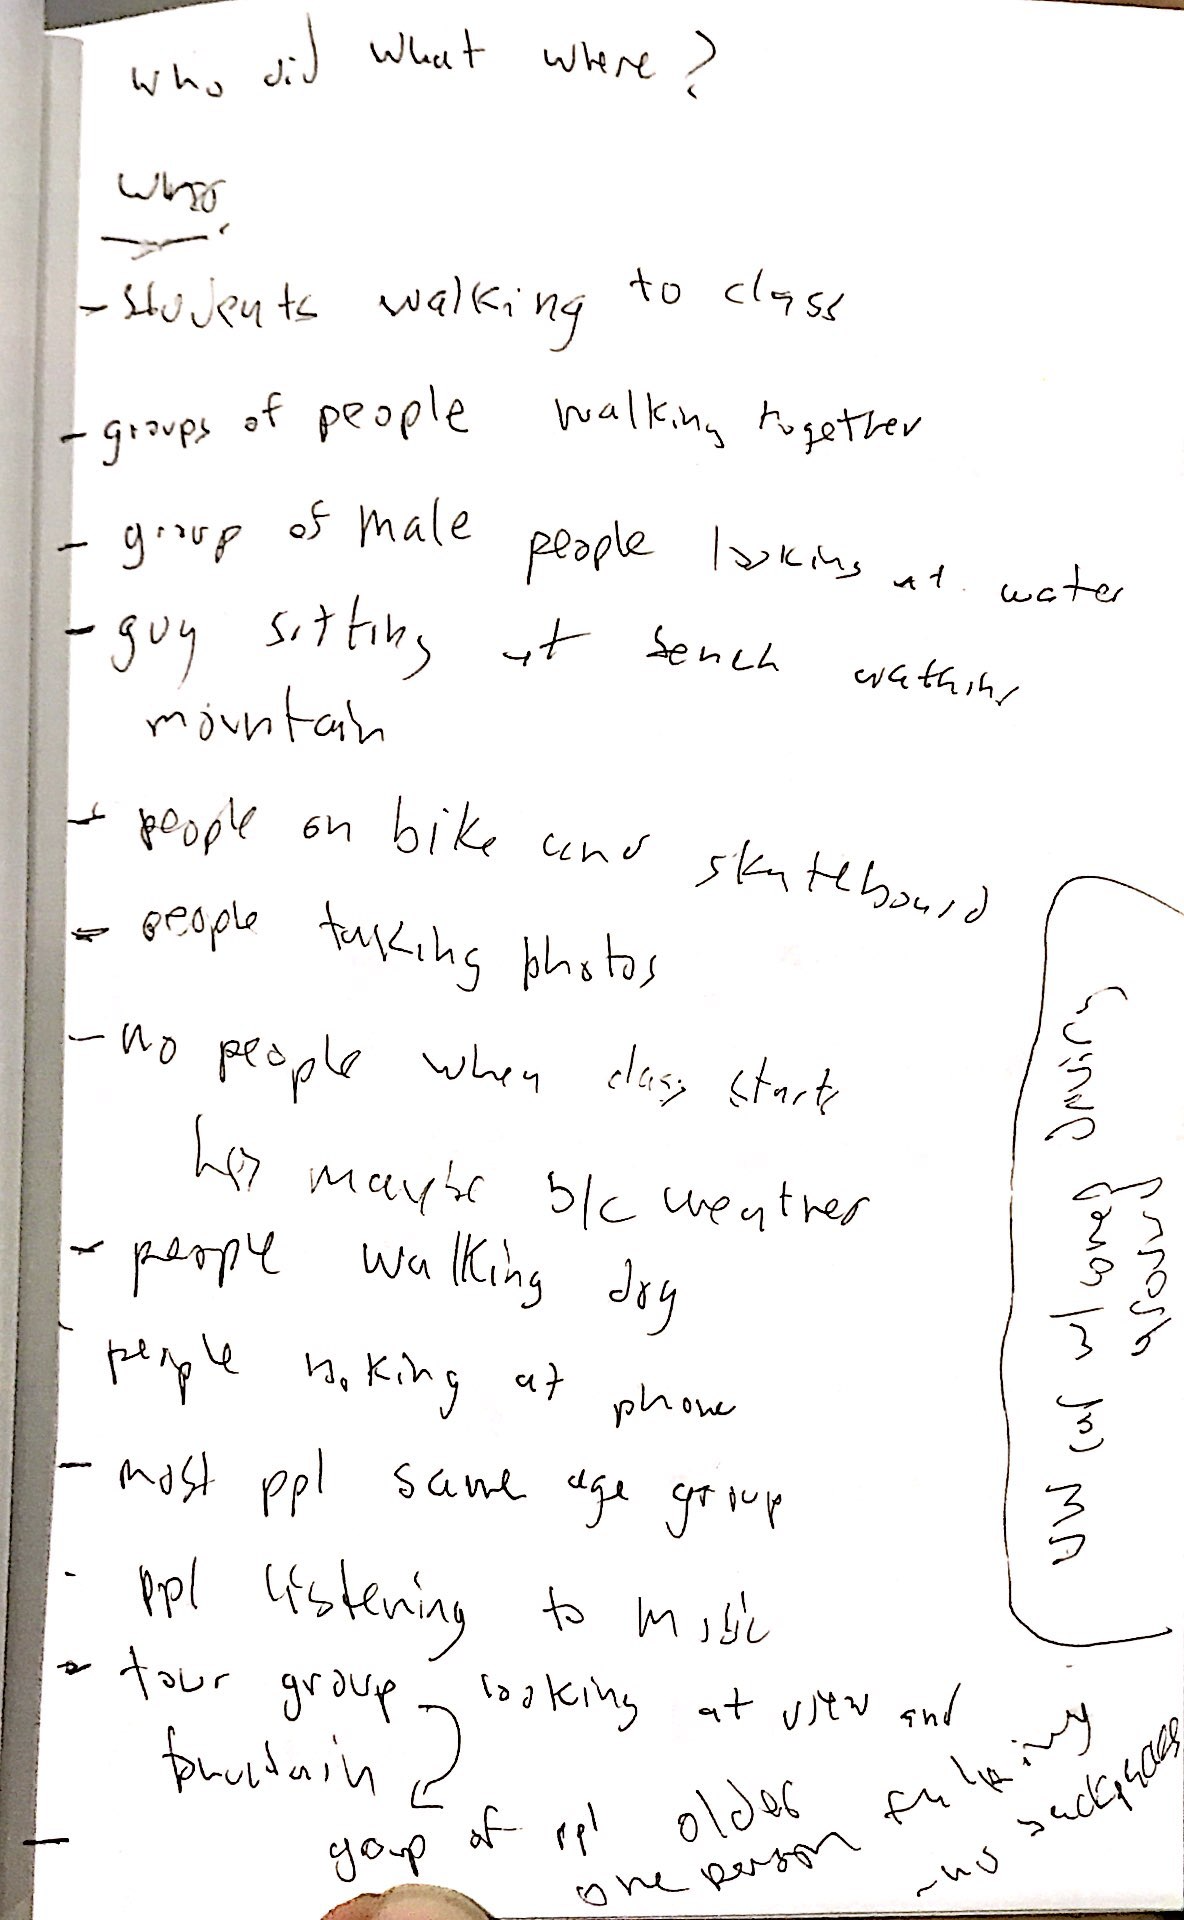 who did what where?
who
- students walking to class
- groups of people walking together
- group of male people looking at water
- guy sitting at bench watching
mountain
- people on bike and skateboard
- people taking photos
- no people when class starts
maybe b/c weather
- people walking dog
people looking at phone
- most ppl same age group
- ppl listening to music
- tour group looking at view and
fountain
group of ppl older
one person talking
- no backpacks
UW car w/ cones driving
around